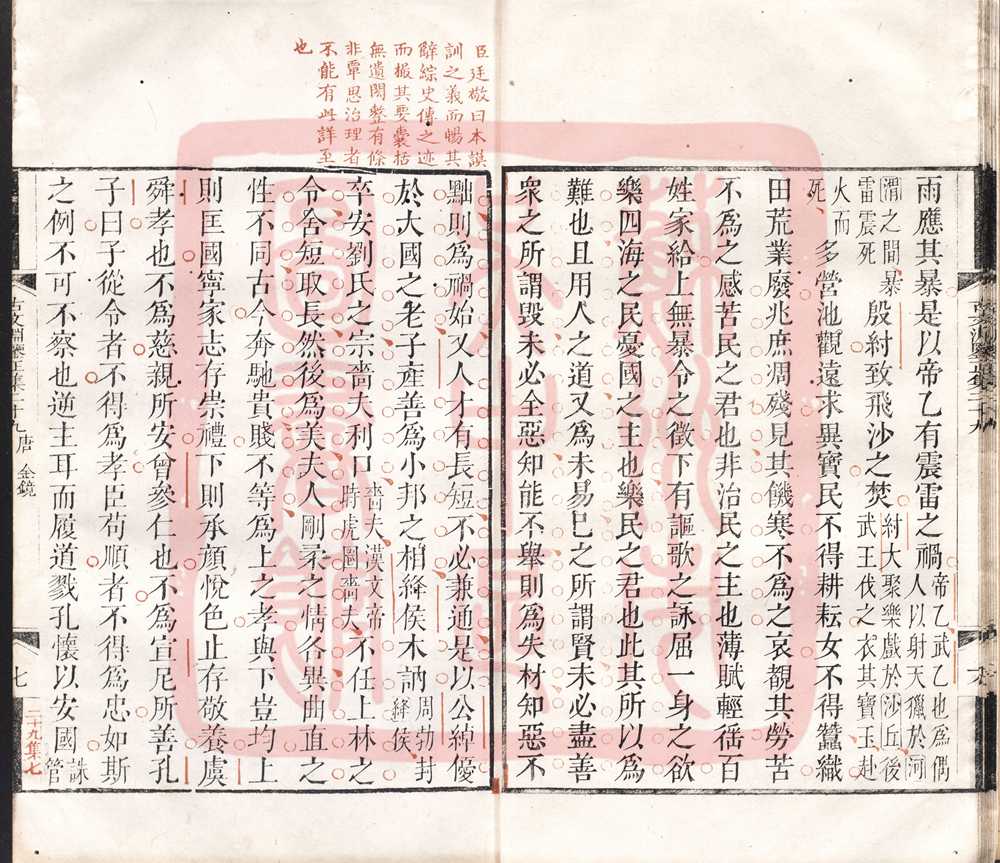 雨應其暴是以帝乙有震雷之禍帝乙武乙也爲偶人以射天獵於河
渭之間暴雷震死殷紂致飛沙之焚紂大聚樂戲於沙丘後武王伐之衣其寶玉赴
火而死多營池觀遠求異寶民不得耕耘女不得蠶織
田荒業廢兆庶凋殘見其饑寒不爲之哀覩其勞苦
不爲之感苦民之君也非治民之主也薄賦輕徭百
姓家給上無暴令之徵下有謳歌之詠屈一身之欲
樂四海之民憂國之主也樂民之君也此其所以爲
難也且用人之道又爲未易已之所謂賢未必盡善
衆之所謂毀未必全惡知能不舉則爲失材知惡不
臣廷敬曰本謨
訓之義而暢其
辭綜史傳之迹
而撮其要囊括
無遺閎整有條
非覃思治理者
不能有此詳至
也
黜則爲禍始又人才有長短不必兼通是以公綽優
於大國之老子產善爲小邦之相絳侯木訥周勃封絳侯
卒安劉氏之宗嗇夫利口嗇夫漢文帝時虎圈嗇夫不任上林之
令舍短取長然後爲美夫人剛柔之情各異曲直之
性不同古今奔馳貴賤不等爲上之孝與下豈均上
則匡國寧家志存崇禮下則承顏悅色止存敬養虞
舜孝也不爲慈親所安曾參仁也不爲宣尼所善孔
子曰子從令者不得爲孝臣苟順者不得爲忠如斯
之例不可不察也逆主耳而履道戮孔懷以安國誅管
唐 金鏡
七
二十九集七